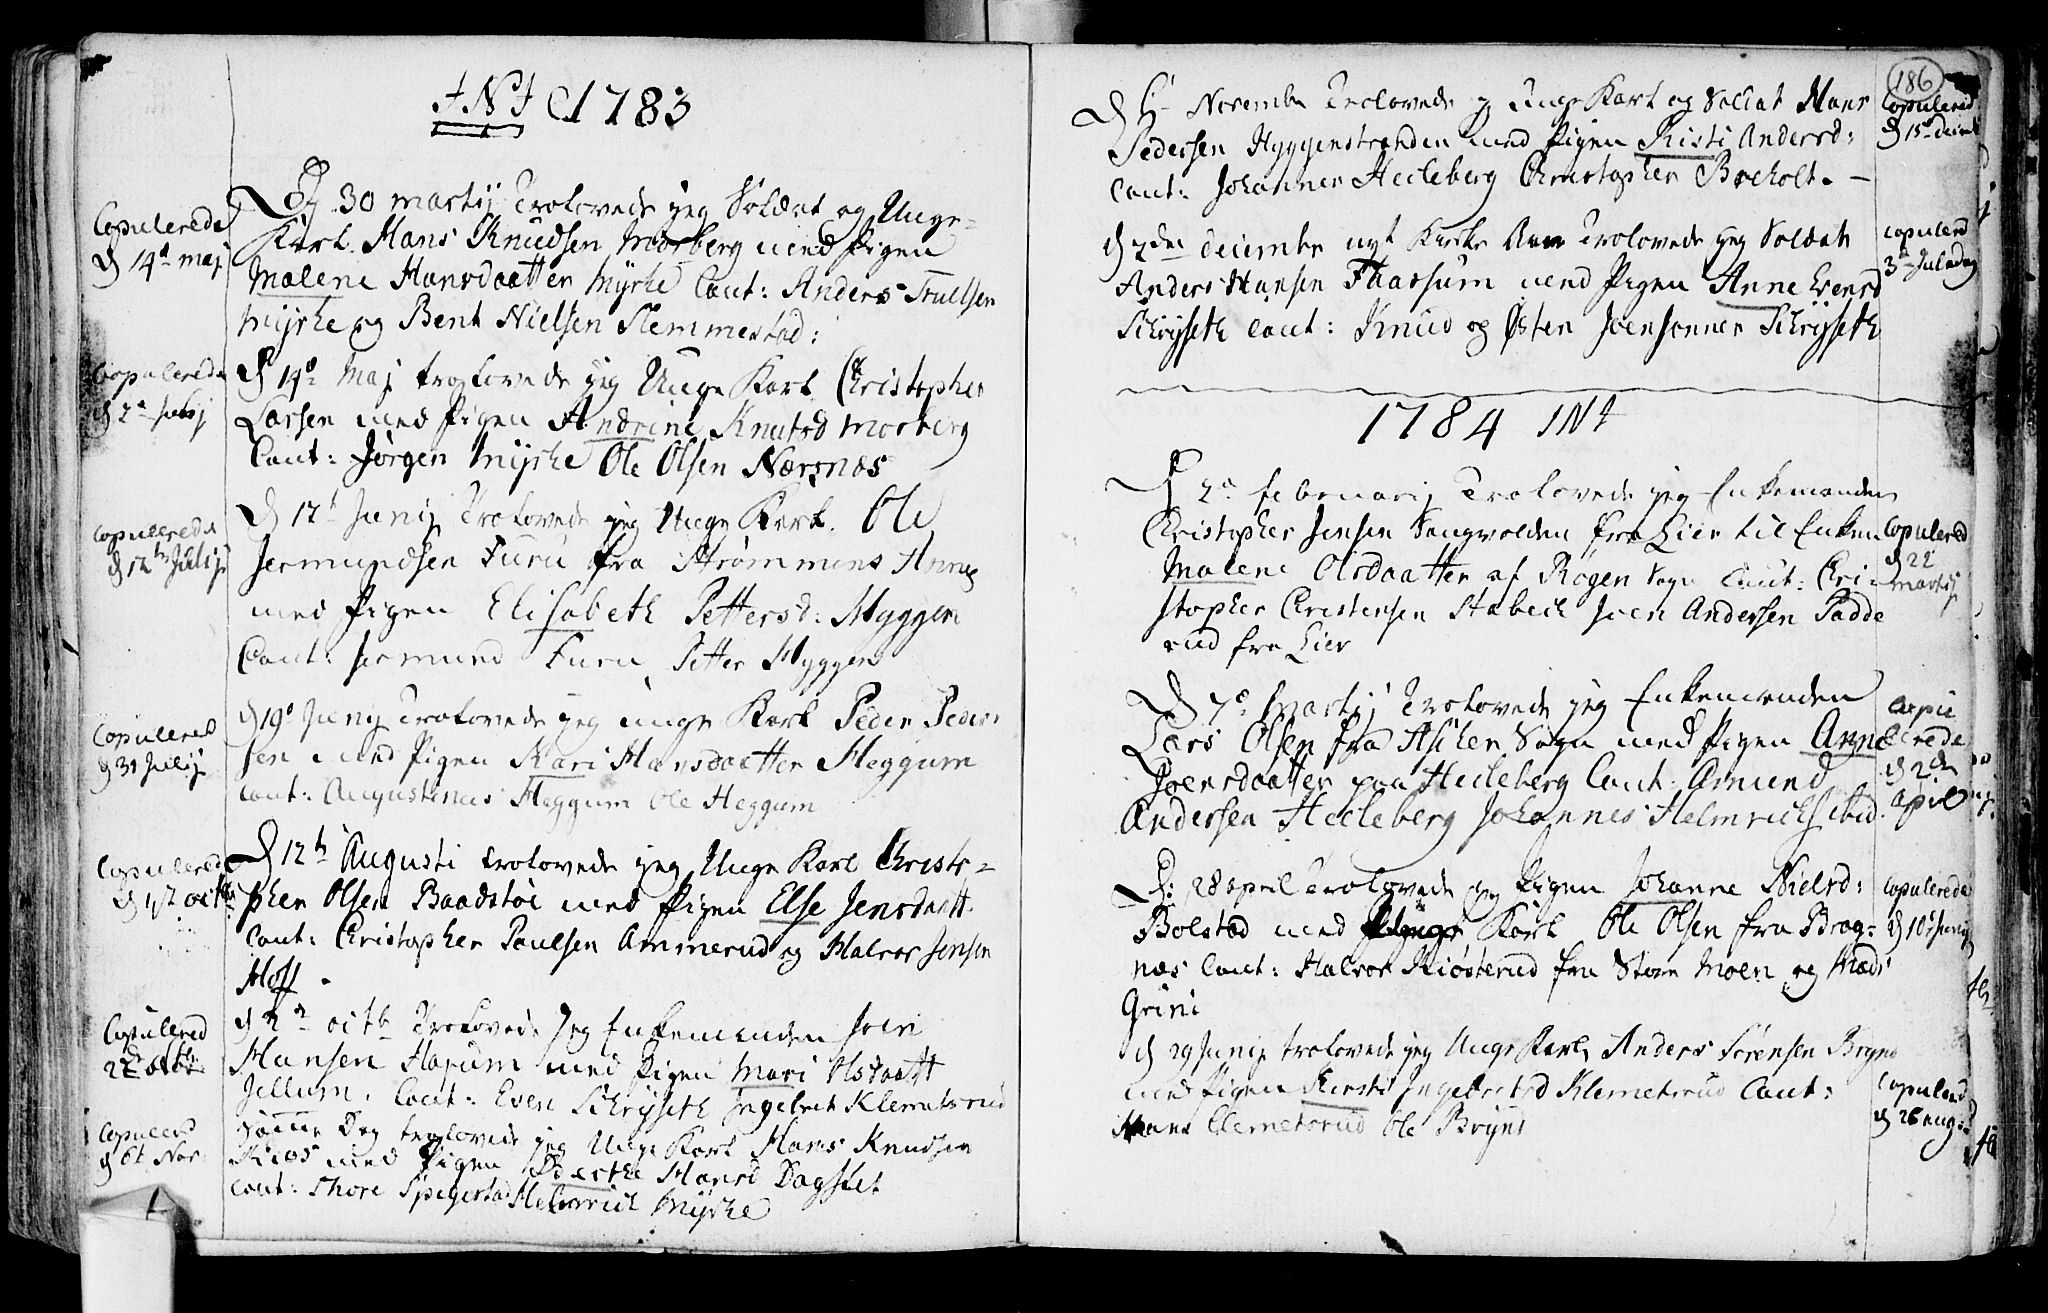 J N J 1783
Copulerede
d 14d maj
D 30 martij Trolovede jeg Soldat og Unge-
Karl Hans Knudsen Morberg med Pigen
Malene Hansdaatter Myrhe Caut: Anders Truelsen
Myrhe og Bent Nielsen Slemmestad:
Copulerede
d 2d Julij
D 14d Maj trolovede jeg Unge Karl Christopher
Larsen med Pigen Andrine Knutsd Morberg
Caut: Jørgen Myrhe Ole Olsen Nærsnæs
Copulerede
d 12t Julij
D 12t Junij Trolovede jeg Unge Karl. Ole
Jermundsen Furu fra Strømmens Annex
med Pigen Elisabeth Pettersd: Hyggen
Caut: Jermund Furu, Petter Hyggen
Copulered
d 31 Julij
d 19d Junij Trolovede jeg unge Karl Peder Peder-
sen med Pigen Kari Hansdaatter Heggum
Caut: Augustinus Heggum Ole Heggum
Copulered
d 12 octb
D 12t Augusti trolovede jeg Unge Karl Christo-
pher Olsen Baadstøe med Pigen Else Jensdaatt.
Caut: Christopher Poulsen Ammerud og Halvor Jensen
Hoff.
Copulered
22 octbr
d 2d octb Trolovede Jeg Enkemanden Joen
Hansen Hapum med Pigen Mari Olsdaatt
Jellum. Caut: Even Schrijseth Ingebret Klemetsrud
Copulerd
d 6t Nov
Samme Dag trolovede jeg Unge Karl Hans Knudsen
Kiøs med Pigen Dorthe Hansd Dagslet
Caut: Thore Spegestad Helmrich Myrhe
186
D 6 November Trolovede jeg Unge Karl og Soldat Hans
Pedersen Hyggenstranden med Pigen Kisti Andersd:
Caut: Johannes Heileberg Christopher Boeholt. -
Copulered
d 15d decemb
d 7den decembr nyt Kirke Aar Trolovede jeg Soldat
Anders Hansen Haassum med Pigen Anne Evensd
Schrijseth Caut: Knud og Østen Joensønner Schrijseth
Copulerd
3d Juledag
1784 JNJ
D 2d februarij Trolovede jeg Enkemanden
Christopher Jensen Sangvolden fra Lier til Enken
Malene Olsdaatter af Røgen Sogn Caut: Chri-
stopher Christensen Stabeck Joen Andersen Padde
rud fra Lier
Copulered
d 22
martij
D 7d Martij Trolovede jeg Enkemanden
Lars Olsen fra Ascher Sogn med Pigen Anne
Joensdaatter paa Heileberg Caut: Amund
Andersen Heileberg Johannes Helmrichs ibid.
Copu
lerede
d 2den
April
D: 28 april Trolovede jeg Pigen Johanne Nielsd:
Bolstad med Unge Karl Ole Olsen fra Brag-
næs Caut: Halvor Kiøsterud fra Store Moen og Mads
Grini
Copulerede
d 10d Junij
d 29 Junij trolovede jeg Unge Karl Anders Sørensen Brynd
med Pigen Kirsti Ingebretsd Klemetsrud Caut:
Hans Clemetsrud Ole Brynd
Copulered
d 26 aug: